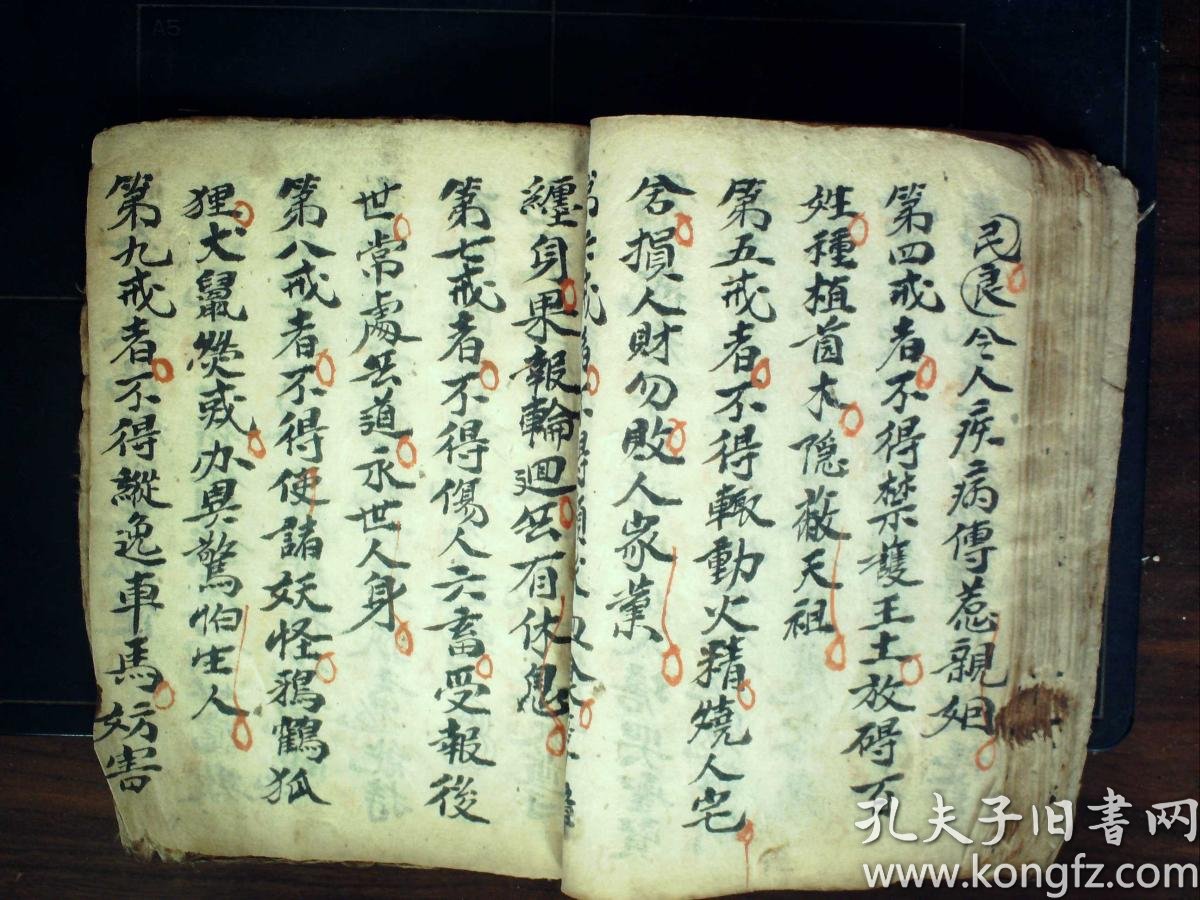 民良令人疾病傳惹親姻
第四戒者不得禁護王土放碍百
姓種植苗木隐蔽天祖
第五戒者不得輙動火精燒人宅
舍損人財勿敗人家業
纏身果報輪迴無有休息
第七戒者不得傷人六畜受報後
世常處無道永世人身
第八戒者不得使諸妖怪鴉鶴狐
狸犬鼠熒或办異驚怕生人
第九戒者不得縱逸車馬妨害
孔夫子旧书网
www.kongfz.com